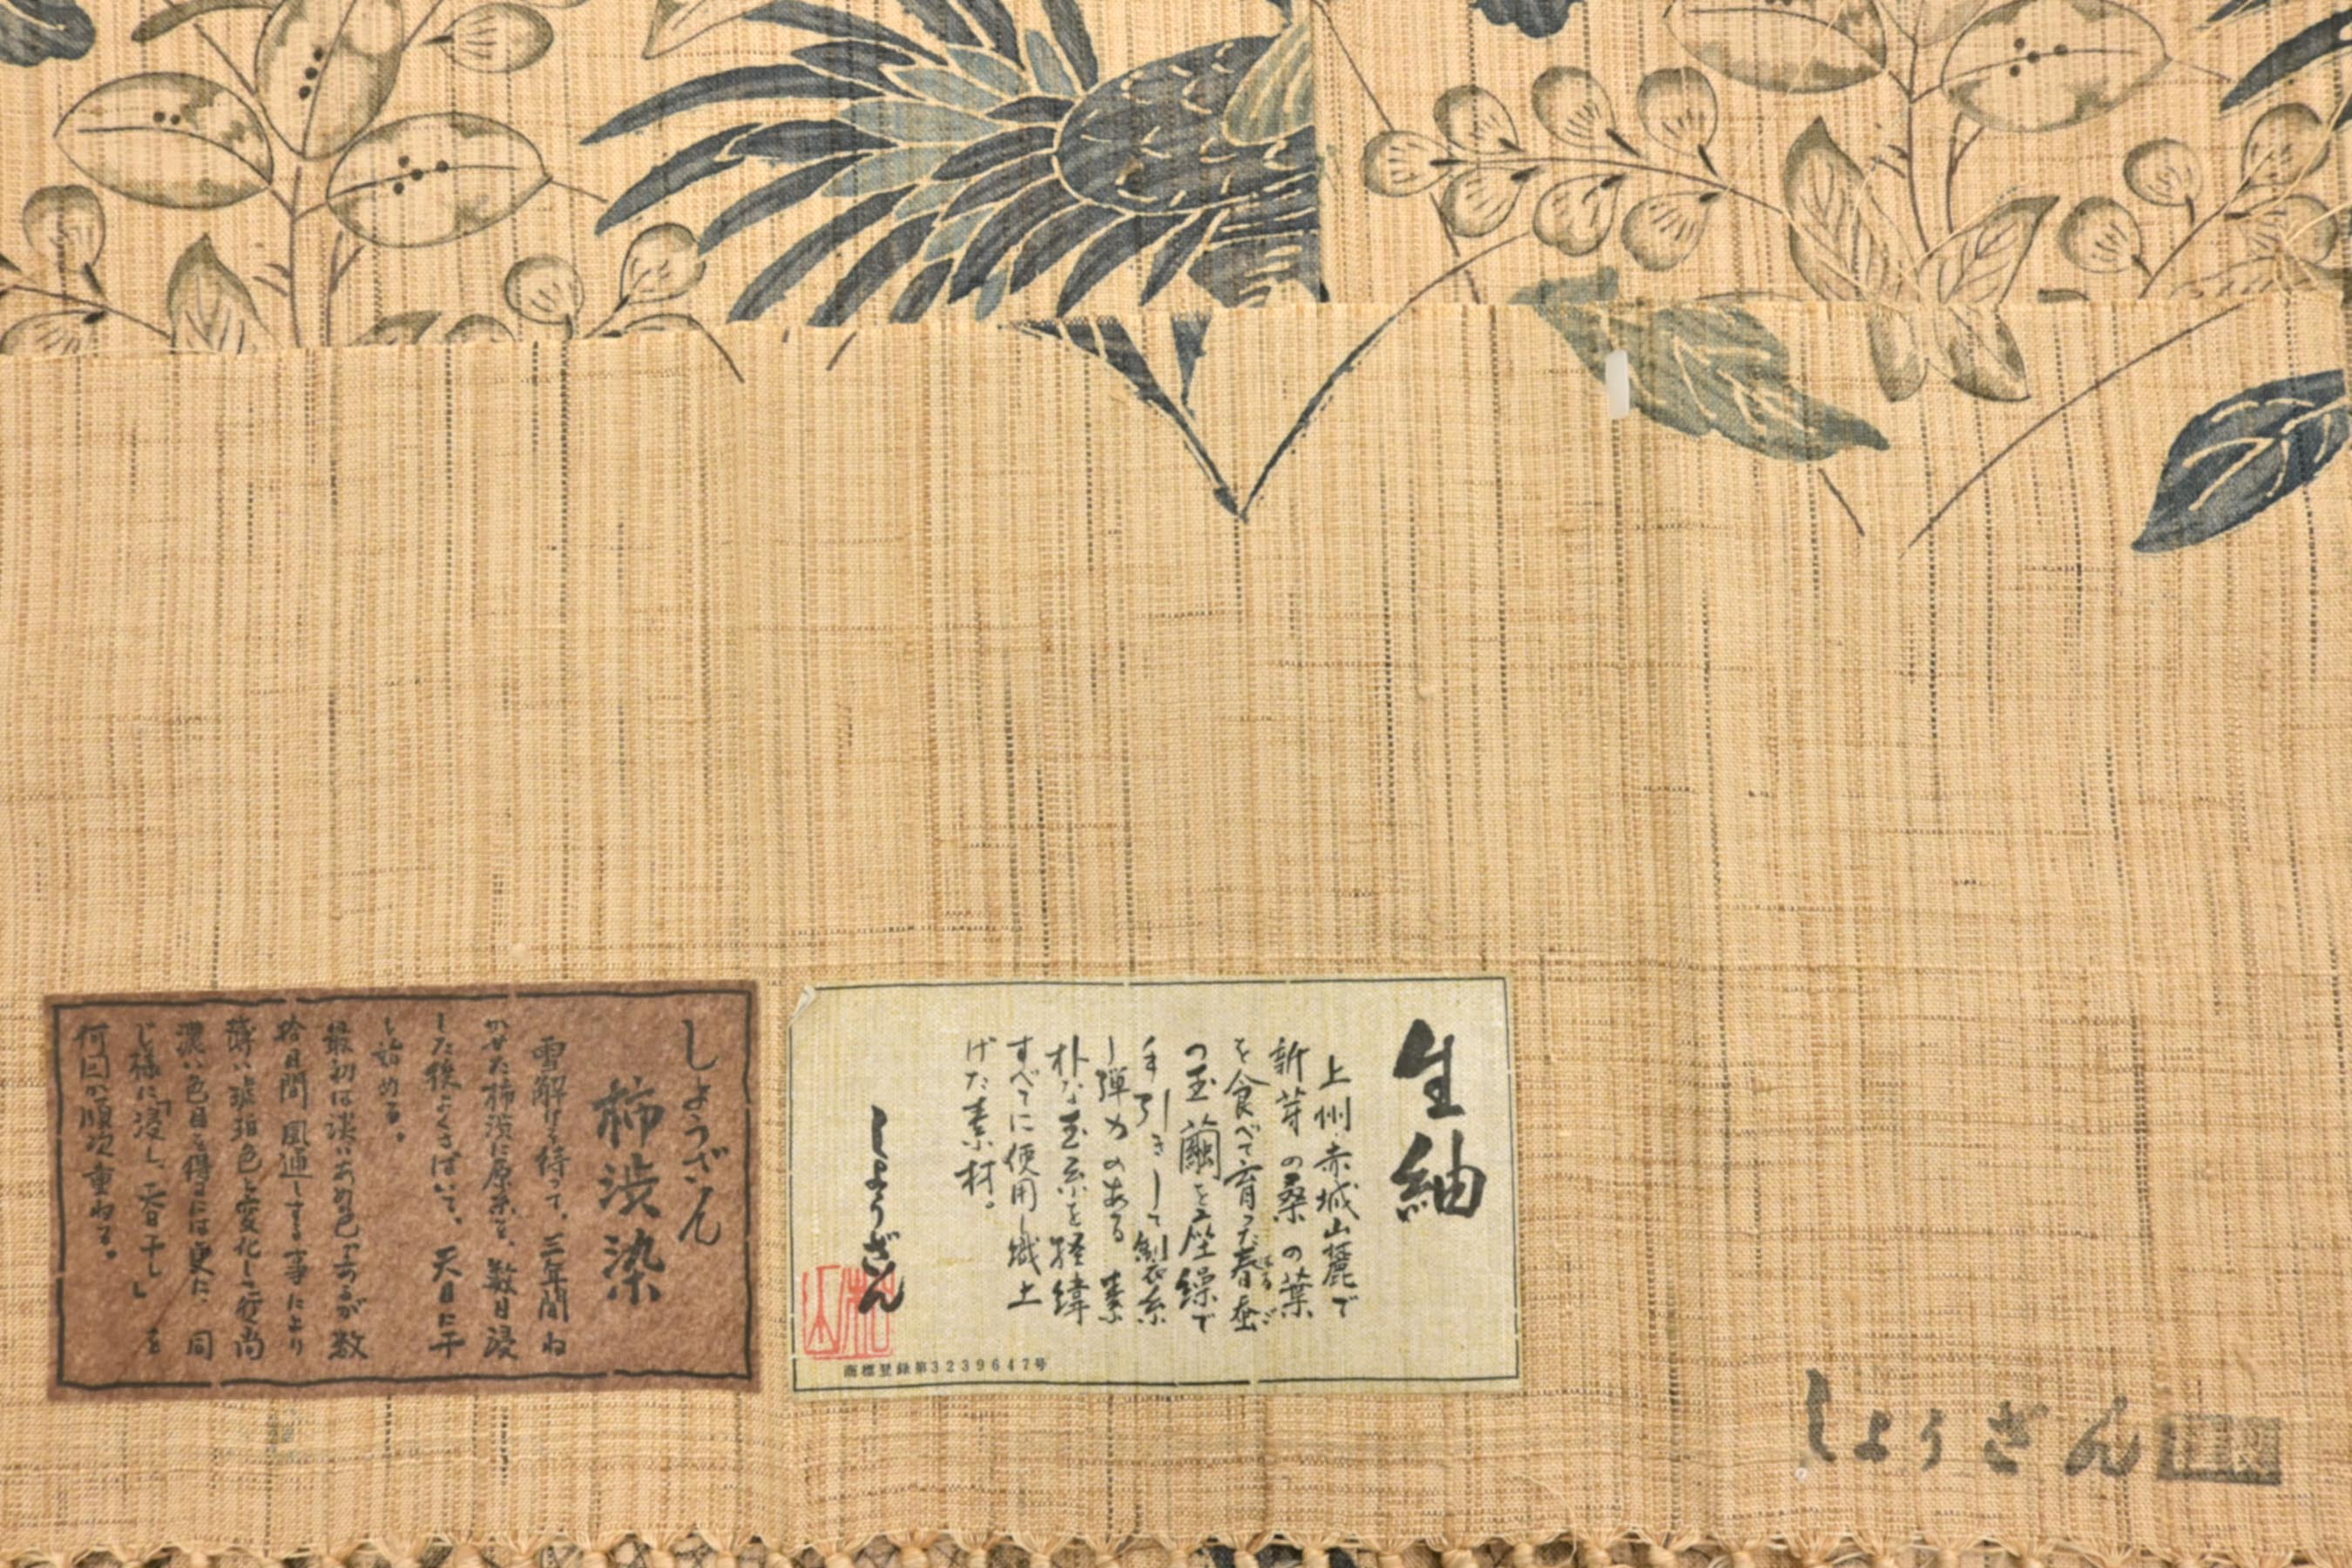 生紬
上州赤城山麓で
新芽の桑の葉
を食べて育った春蚕
はるご
の玉繭を座繰で
手引きして製糸
し弾力のある素
朴な玉糸を経緯
すべてに使用し織上
げた素材。
しょうざん
商標登録第3239647号
しょうざん
柿渋染
雪解けを待って、三年間ね
かせた柿渋に原糸を、数日浸
した後よくさばいて、天日に干
し始める。
最初は淡いあめ色であるが数
拾日間風通しする事により
薄い琥珀色と変化して行く尚
濃い色目を得るには更に、同
じ様に「浸し、天日干し」を
何回か順次重ねる。
しょうざん